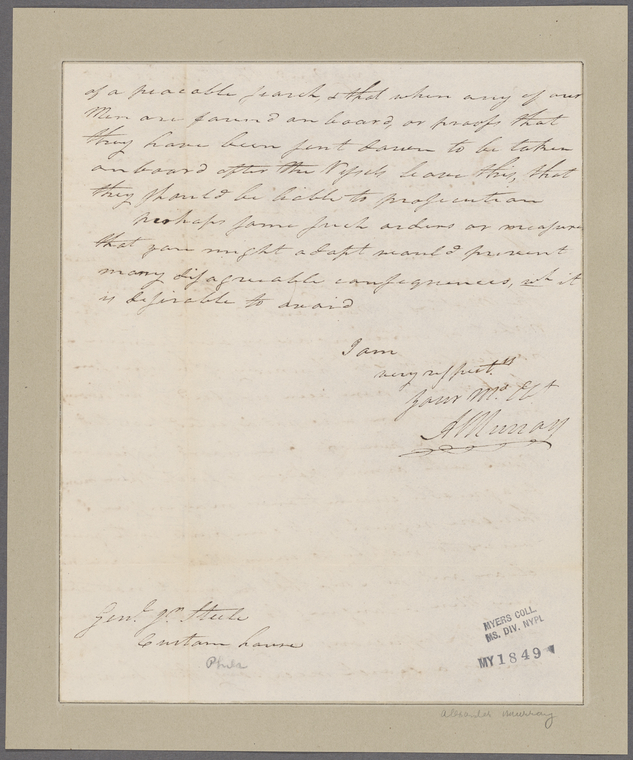 of a peacable search, & that when any of our
Men are found on board, or proofs that
they have been sent down to be taken
on board after the Vessels leave this, that
they should be liable to prosecution
Perhaps some such orders or measures
that you might adopt would prevent
many disagreeable consequences, wh it
is desirable to avoid
I am
very respect.ly
Your Mo. Obt
A Murray
Genl. Jn Steele
Custom house
Phila
MYERS COLL.
MS. DIV. NYPL
MY 1849
Alexander Murray